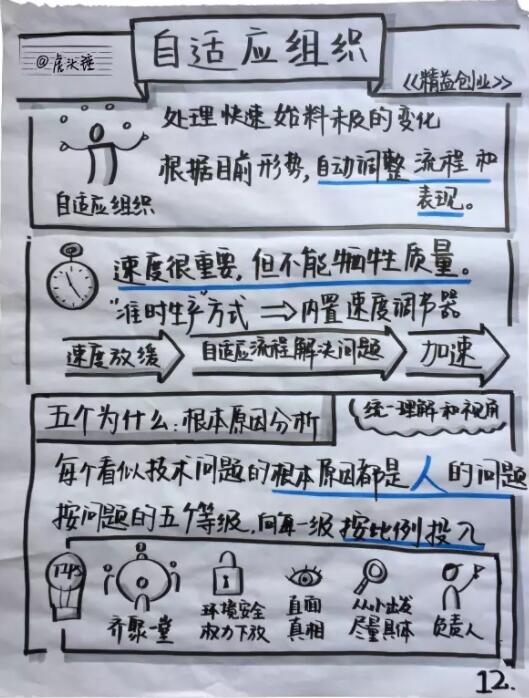 自适应组织
@虎头锤
《精益创业》
处理快速始料未及的变化
根据目前形势,自动调整流程和
表现。
自适应组织
速度很重要,但不能牺牲质量。
"准时生产"方式 ⇒内置速度调节器
速度放缓
自适应流程解决问题
加速
五个为什么:根本原因分析
统一理解和视角
每个看似技术问题的根本原因都是人的问题
按问题的五个等级,向每一级按比例投入
TIPS
齐聚一堂
环境安全
权力下放
直面
真相
从小出发
尽量具体
负责人
12.